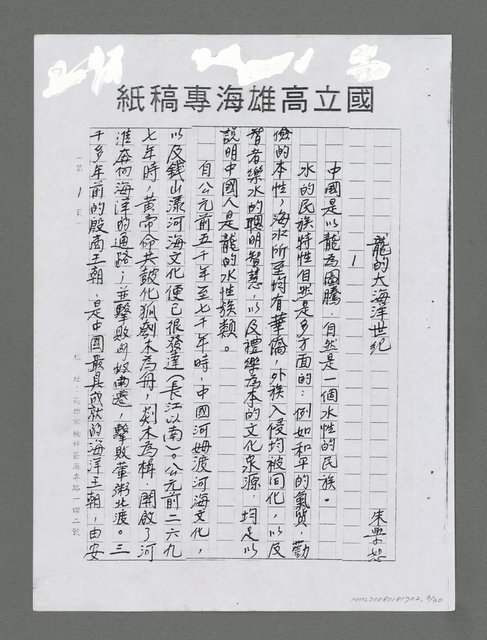 國立高雄海專稿紙
龍的大海洋世紀
朱學恕
1
中國是以龍為圖騰，自然是一個水性的民族。
水的民族特性自然是多方面的：例如和平的氣質，勤
儉的本性，海水所至均有華僑，外族入侵均被同化，以及
智者樂水的聰明智慧，以及禮樂為本的文化泉源，均足以
說明中國人是龍的水性族類。
自公元前五千年至七千年時，中國河姆渡河海文化，
以及錢山漾河海文化便已很發達（長江以南）。公元前二六九
七年時，黃帝命共鼓化狐刳木為舟，剡木為楫，開啟了河
淮奔向海洋的通路；並擊敗蚩尤南遷，擊敗葷粥北渡。三
千多年前的殷商王朝，是中國最具成就的海洋王朝，由安
（第 1 頁）
校址：高雄市楠梓區海專路一四二號
NMTL20080181702, 3/30